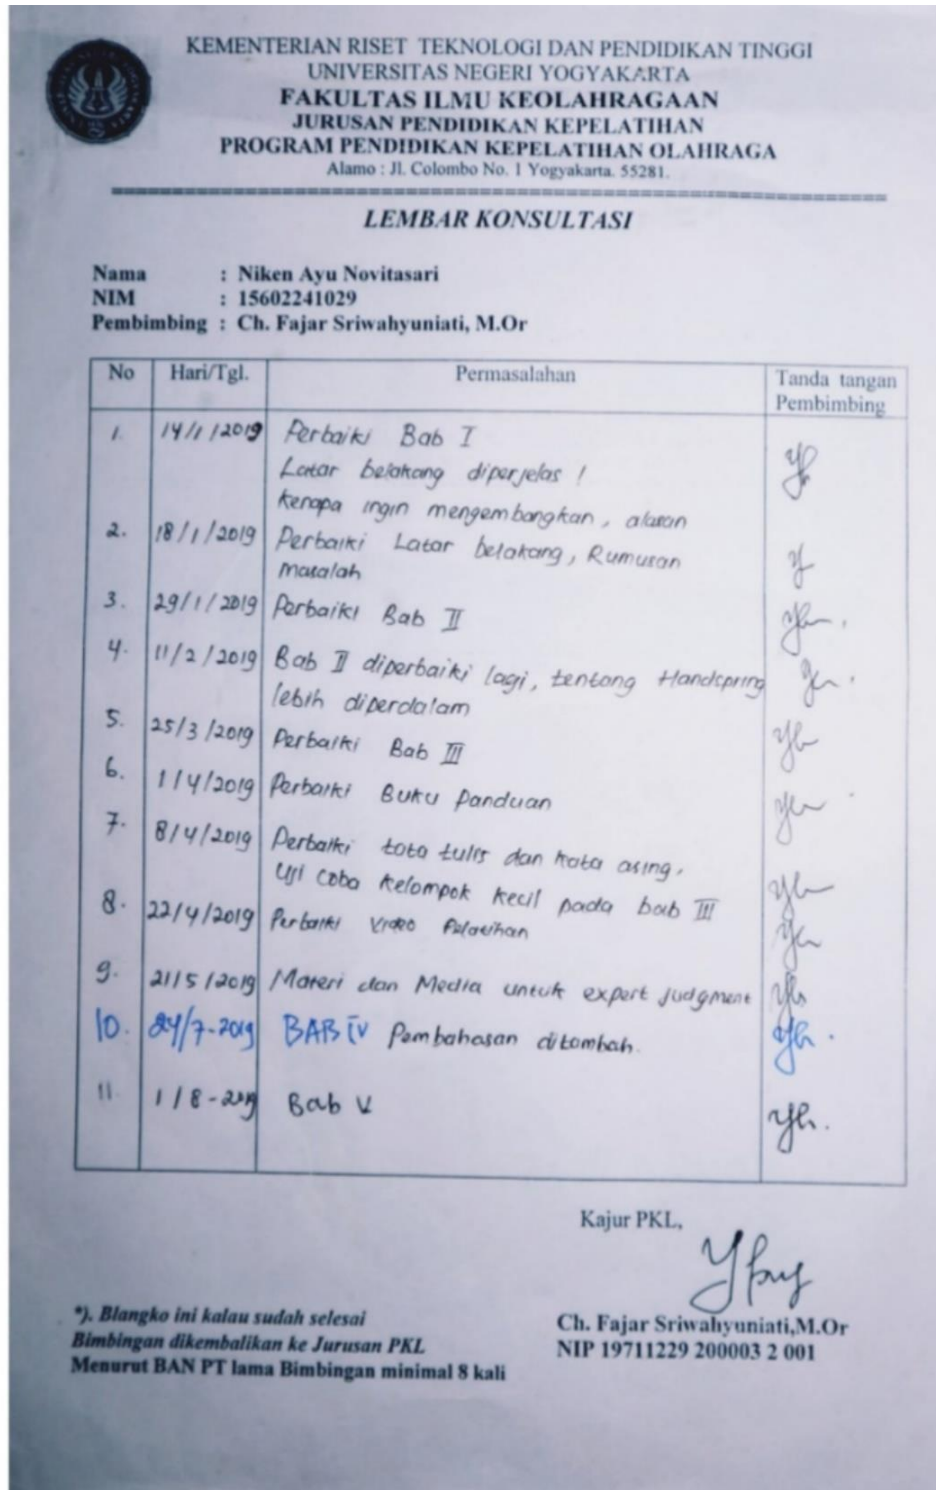 KEMENTERIAN RISET TEKNOLOGI DAN PENDIDIKAN TINGGI
UNIVERSITAS NEGERI YOGYAKARTA
FAKULTAS ILMU KEOLAHRAGAAN
JURUSAN PENDIDIKAN KEPELATIHAN
PROGRAM PENDIDIKAN KEPELATIHAN OLAHRAGA
Alamo : Jl. Colombo No. 1 Yogyakarta. 55281.
LEMBAR KONSULTASI
Nama : Niken Ayu Novitasari
NIM : 15602241029
Pembimbing : Ch. Fajar Sriwahyuniati, M.Or
No Hari/Tgl. Permasalahan Tanda tangan
Pembimbing
1. 14/1/2019 Perbaiki Bab I
Latar belakang diperjelas !
Kenapa ingin mengembangkan, alasan
2. 18/1/2019 Perbaiki Latar belakang, Rumusan
masalah
3. 29/1/2019 Perbaiki Bab II
4. 11/2/2019 Bab II diperbaiki lagi, tentang Handspring
lebih diperdalam
5. 25/3/2019 Perbaiki Bab III
6. 1/4/2019 Perbaiki Buku Panduan
7. 8/4/2019 Perbaiki tata tulis dan kata asing,
Uji coba kelompok kecil pada bab III
8. 22/4/2019 Perbaiki Video Pelatihan
9. 21/5/2019 Materi dan Media untuk expert judgment
10. 24/7-2019 BAB IV Pembahasan ditambah.
11. 1/8-2019 Bab V
Kajur PKL,
*). Blangko ini kalau sudah selesai
Bimbingan dikembalikan ke Jurusan PKL
Menurut BAN PT lama Bimbingan minimal 8 kali
Ch. Fajar Sriwahyuniati,M.Or
NIP 19711229 200003 2 001